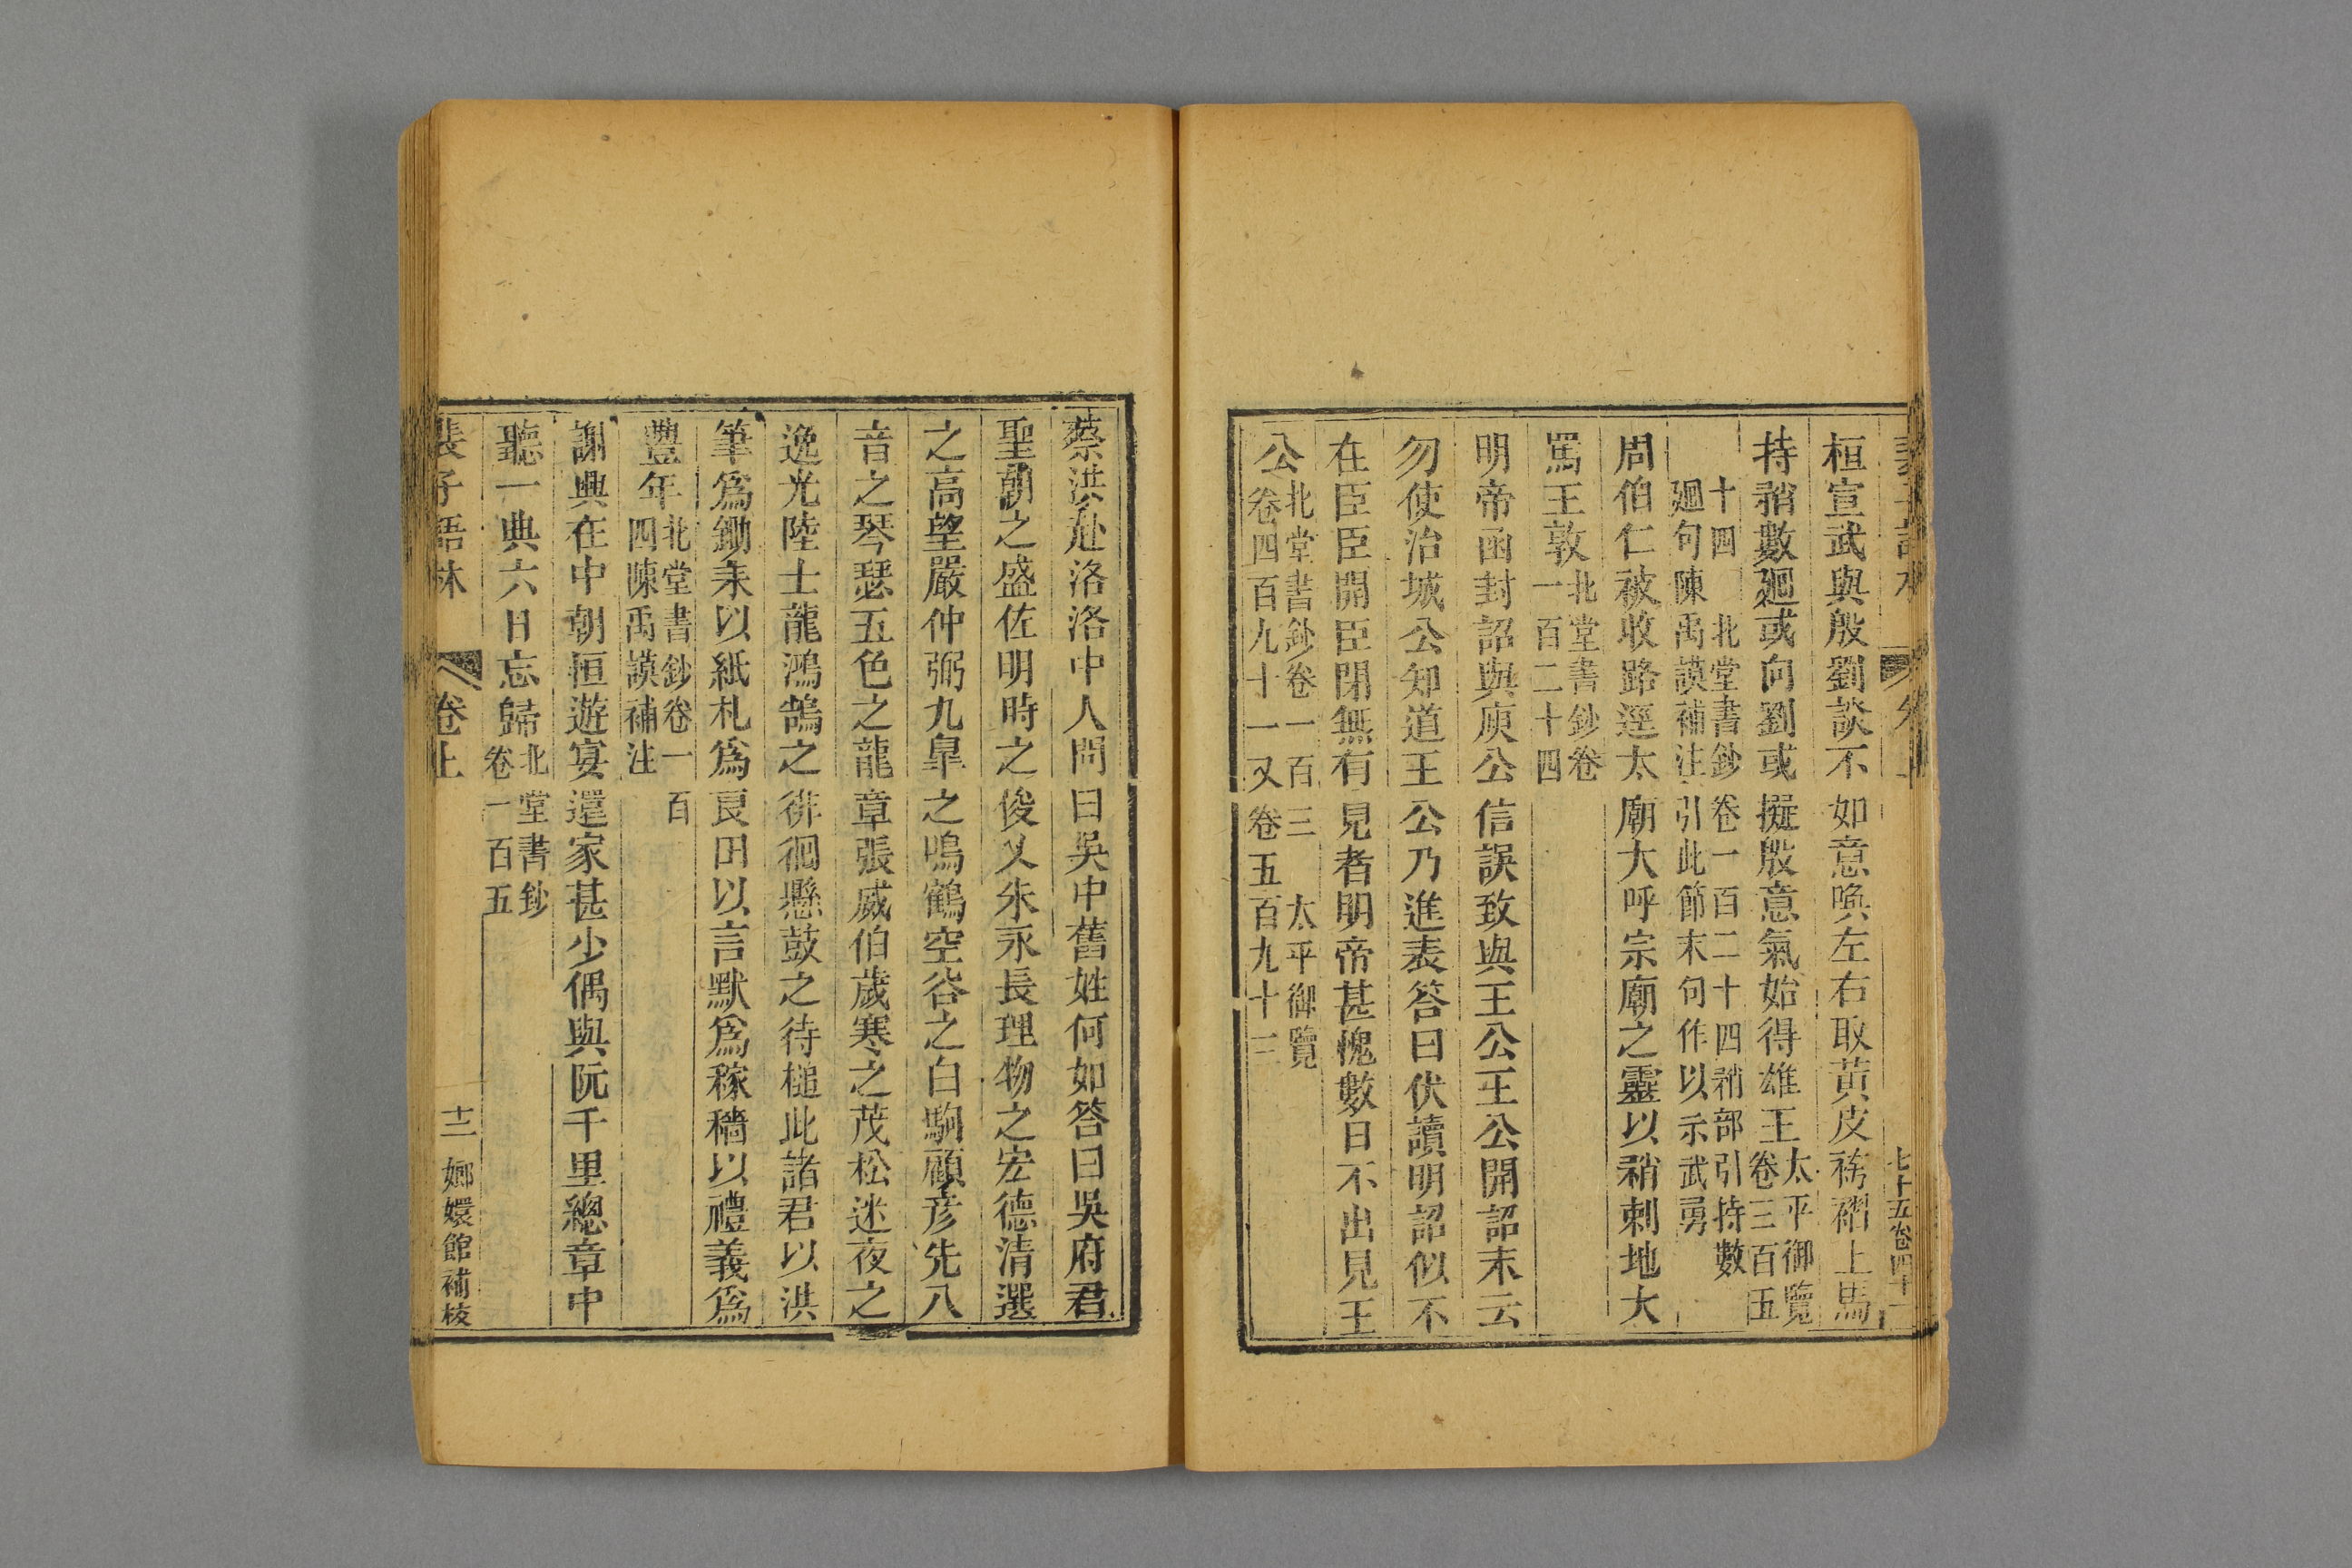 桓宣武與殷劉談不如意喚左右取黃皮袴褶上馬
持矟數廻或向劉或擬殷意氣始得雄王太平御覽
卷三百五
十四 北堂書鈔卷一百二十四矟部引持數
廻句陳禹謨補注引此節末句作以示武勇
周伯仁被收路逕太廟大呼宗廟之靈以矟刺地大
罵王敦北堂書鈔卷
一百二十四
明帝函封詔與庾公信誤致與王公王公開詔末云
勿使治城公知道王公乃進表答曰伏讀明詔似不
在臣臣開臣閉無有見者明帝甚愧數日不出見王
公北堂書鈔卷一百三 太平御覽
卷四百九十一又卷五百九十三
七十五卷四十一
蔡洪赴洛洛中人問曰吳中舊姓何如答曰吳府君
聖朝之盛佐明時之俊乂朱永長理物之宏德清選
之高望嚴仲弼九臯之鳴鶴空谷之白駒顧彥先八
音之琴瑟五色之龍章張威伯歲寒之茂松迷夜之
逸光陸士龍鴻鵠之徘徊懸鼓之待槌此諸君以洪
筆爲鋤耒以紙札爲良田以言默爲稼穡以禮義爲
豐年北堂書鈔卷一百
四陳禹謨補注
謝興在中朝恒遊宴還家甚少偶與阮千里總章中
聽一典六日忘歸北堂書鈔
卷一百五
裴子語林 卷上 十二 嫏嬛館補校